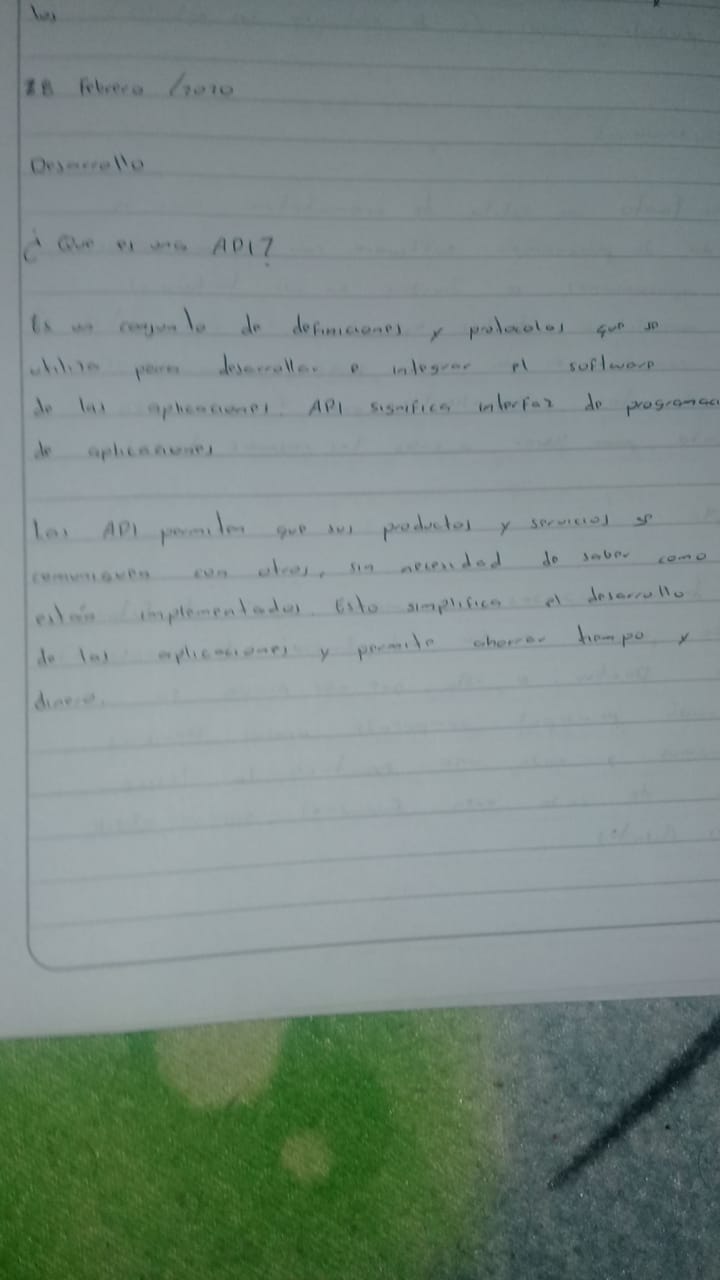 28 Febrero /2020
Desarrollo
¿Que es una API?
Es un conjunto de definiciones y protocolos que se
utiliza para desarrollar e integrar el software
de las aplicaciones. API significa interfaz de programac
de aplicaciones
Las API permiten que sus productos y servicios se
comuniquen con otros, sin necesidad de saber como
están implementados. Esto simplifica el desarrollo
de las aplicaciones y permite ahorrar tiempo y
dinero.